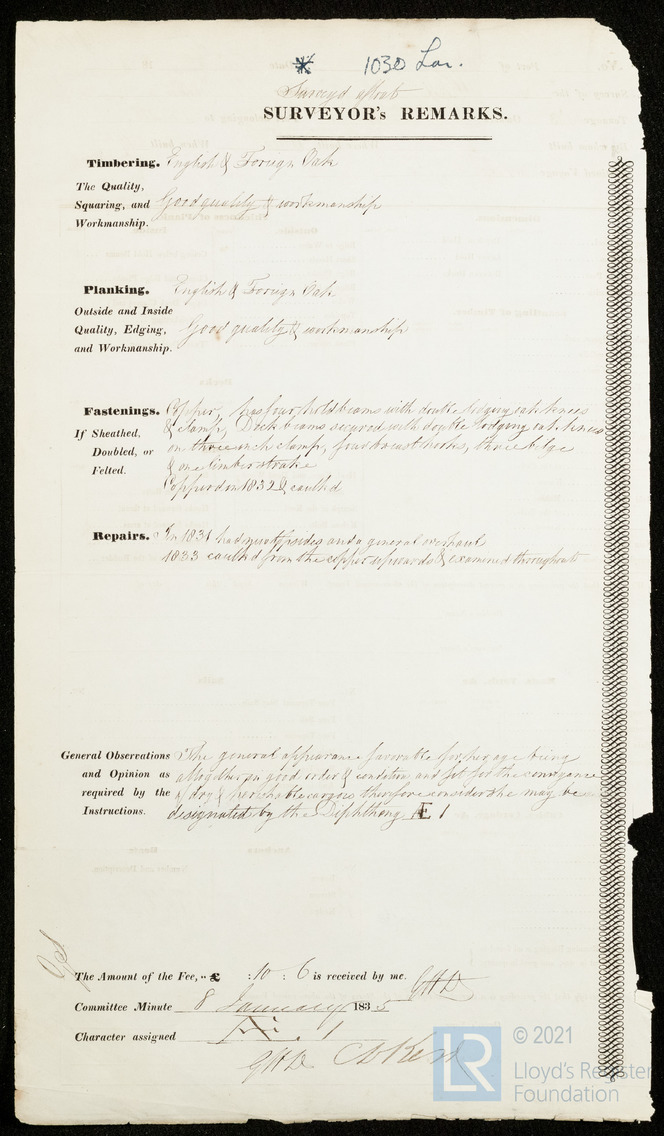 * 1030 Lon.
Surveyd afloat
SURVEYOR's REMARKS.
Timbering. English & Foreign Oak
The Quality,
Squaring, and Good quality & workmanship
Workmanship.
Planking. English & Foreign Oak
Outside and Inside
Quality, Edging, Good quality & workmanship
and Workmanship.
Fastenings. Copper, has four hold beams with double lodging oak knees
If Sheathed, & clamp, Deck beams secured with double lodging oak knees
Doubled, or on three inch clamp, four breast hooks, three bilge
Felted. & one limber strake
Copperd in 1832 & caulkd
Repairs. In 1831 had new topsides and a general overhaul
1833 caulkd from the copper upwards & examined throughout
General Observations The general appearance favorable for her age being
and Opinion as altogether in good order & condition, and fit for the conveyance
required by the of dry & perishable cargoes therefore consider she may be
Instructions. designated by the Diphthong Æ 1
The Amount of the Fee, £ :10 : 6 is received by me. GHD
Committee Minute 8 January 1835
Character assigned Æ . 1
GHD
LR
© 2021
Lloyd's Register
Foundation